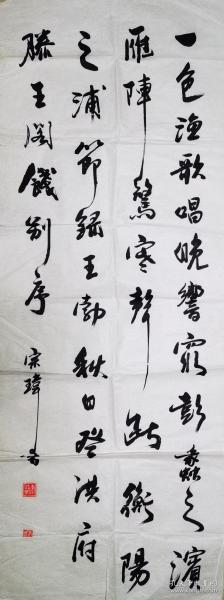 一色渔歌唱晚響窮彭蠡之濱
雁陣驚寒聲斷衡陽
之浦節録王勃秋日登洪府
滕王阁餞别序 宗瑋書